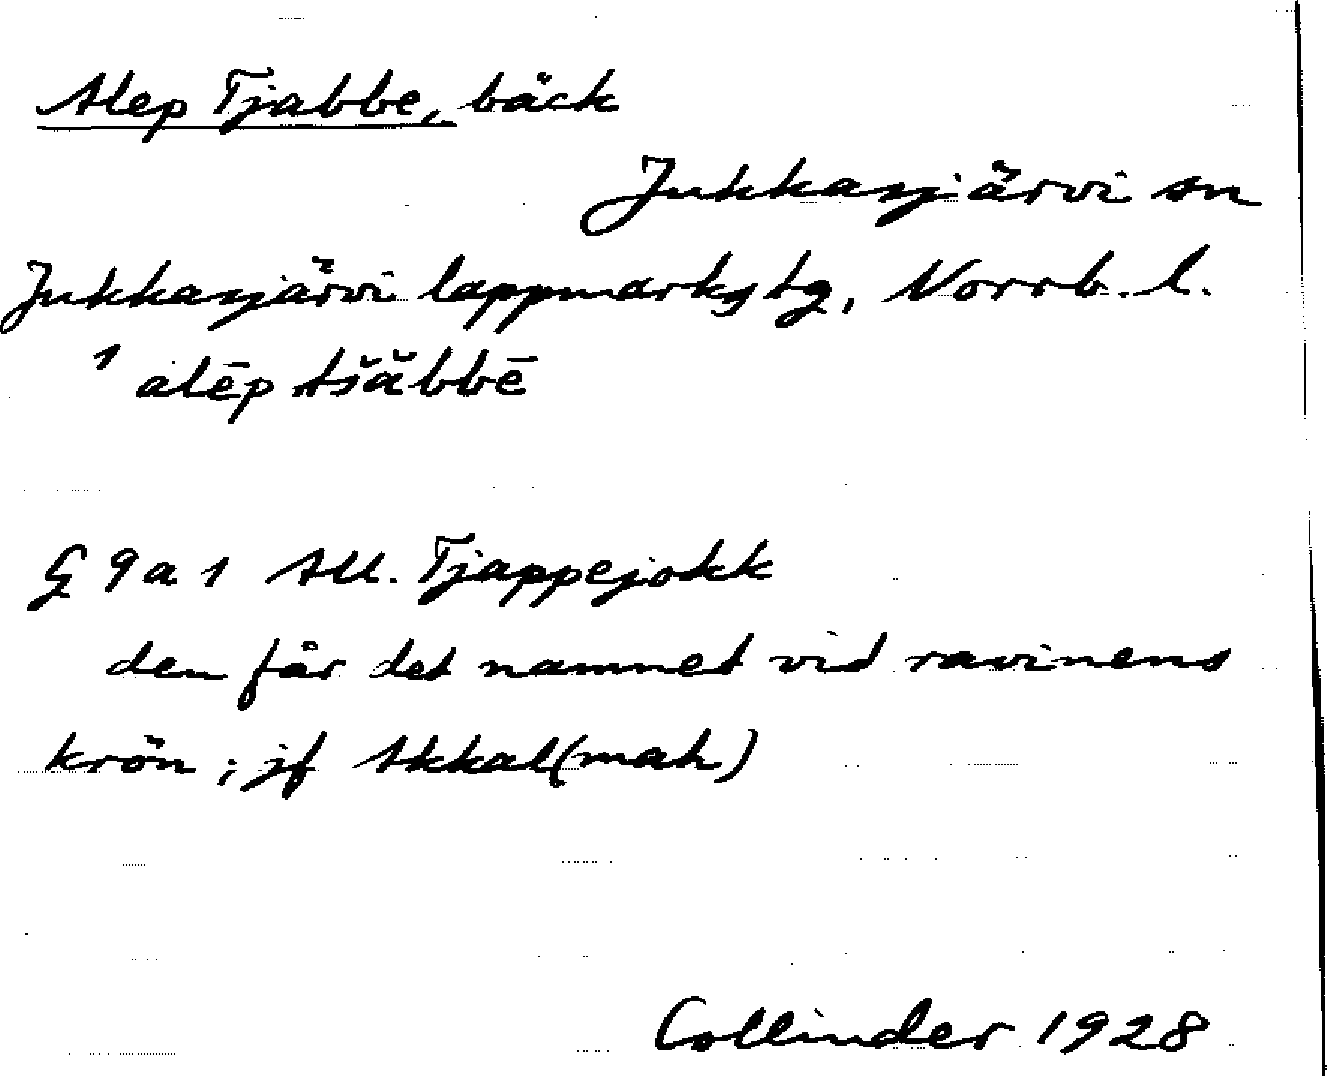 Alep Tjabbe, bäck
Jukkasjärvi sn
Jukkasjärvi lappmarks tg, Norrb. l.
1 alēp tšăbbē
G 9 a 1 All. Tjappejokk
den får det namnet vid ravinens
krön ; jf Akkal(mah)
Collinder 1928